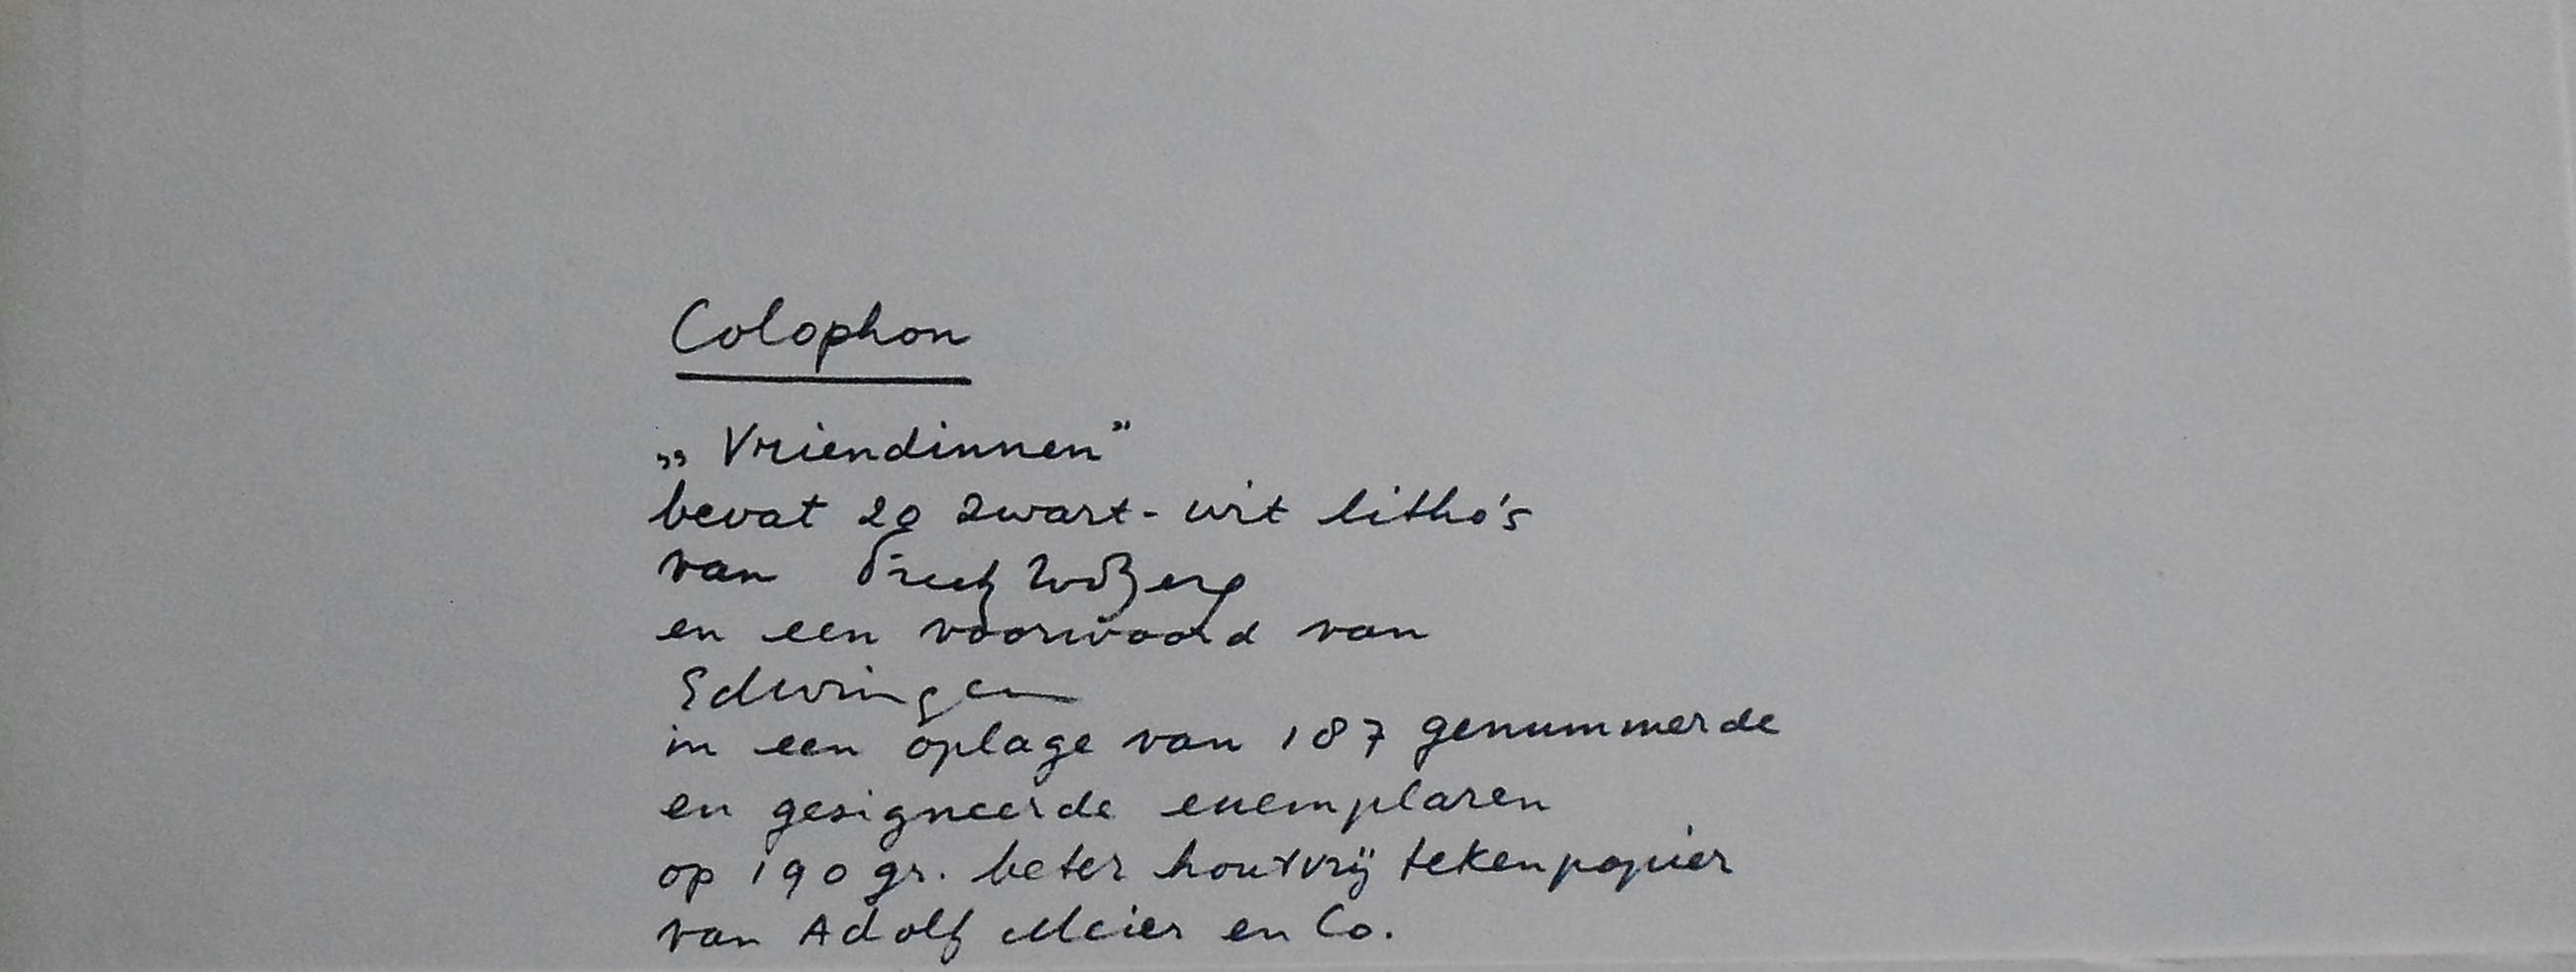 Colophon
„Vriendinnen”
bevat 20 zwart-wit litho's
van
en een voorwoord van
Edwin
in een oplage van 187 genummerde
en gesigneerde exemplaren
op 190 gr. beter houtvrij tekenpapier
van Adolf Meier en Co.